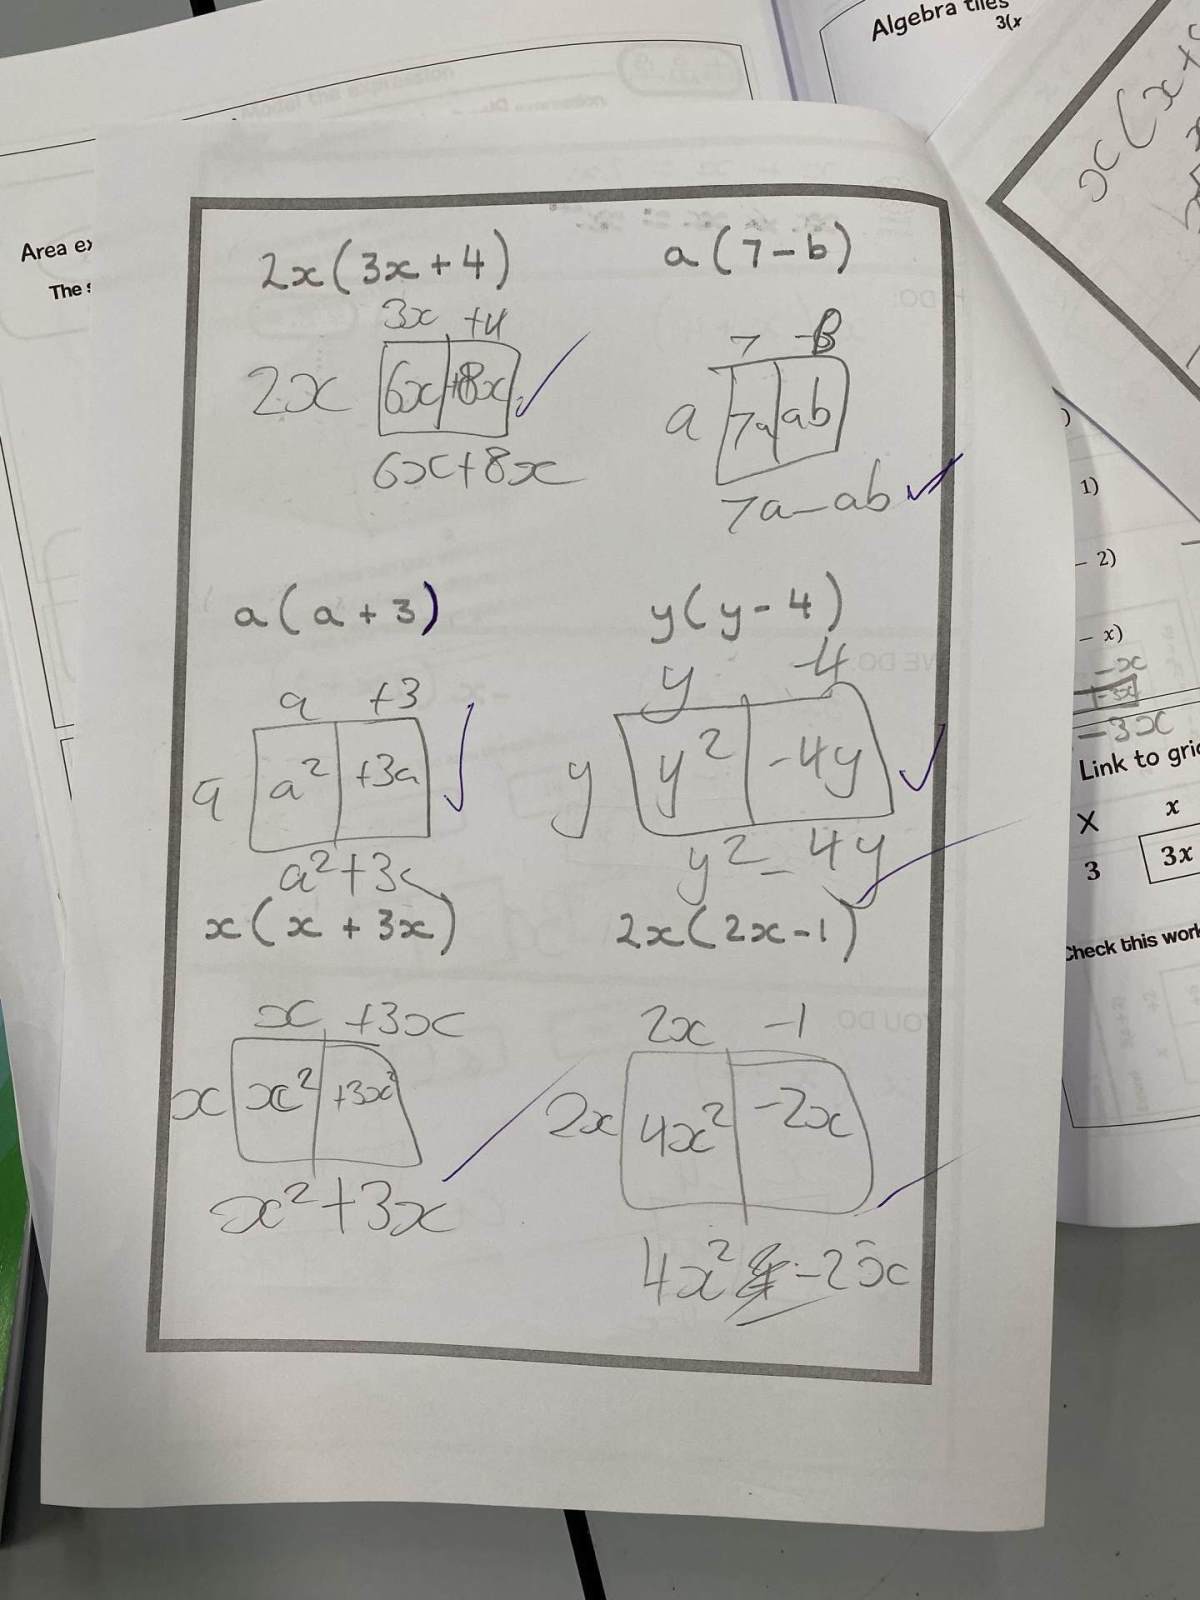 Algebra tiles
3(x
x(x+
Area ex
The s
2x(3x+4)
3x +4
2x 6x +8x
6x+8x
a(7-b)
7 -B
a 7a ab
7a-ab
a(a+3)
a +3
a a² +3a
a²+3a
y(y-4)
y -4
y y² -4y
y²-4y
x(x+3x)
x +3x
x x² +3x²
x²+3x
2x(2x-1)
2x -1
2x 4x² -2x
4x² -2x
)
1)
- 2)
- x)
-x
-3x
Link to grid
X x
3 3x
Check this work